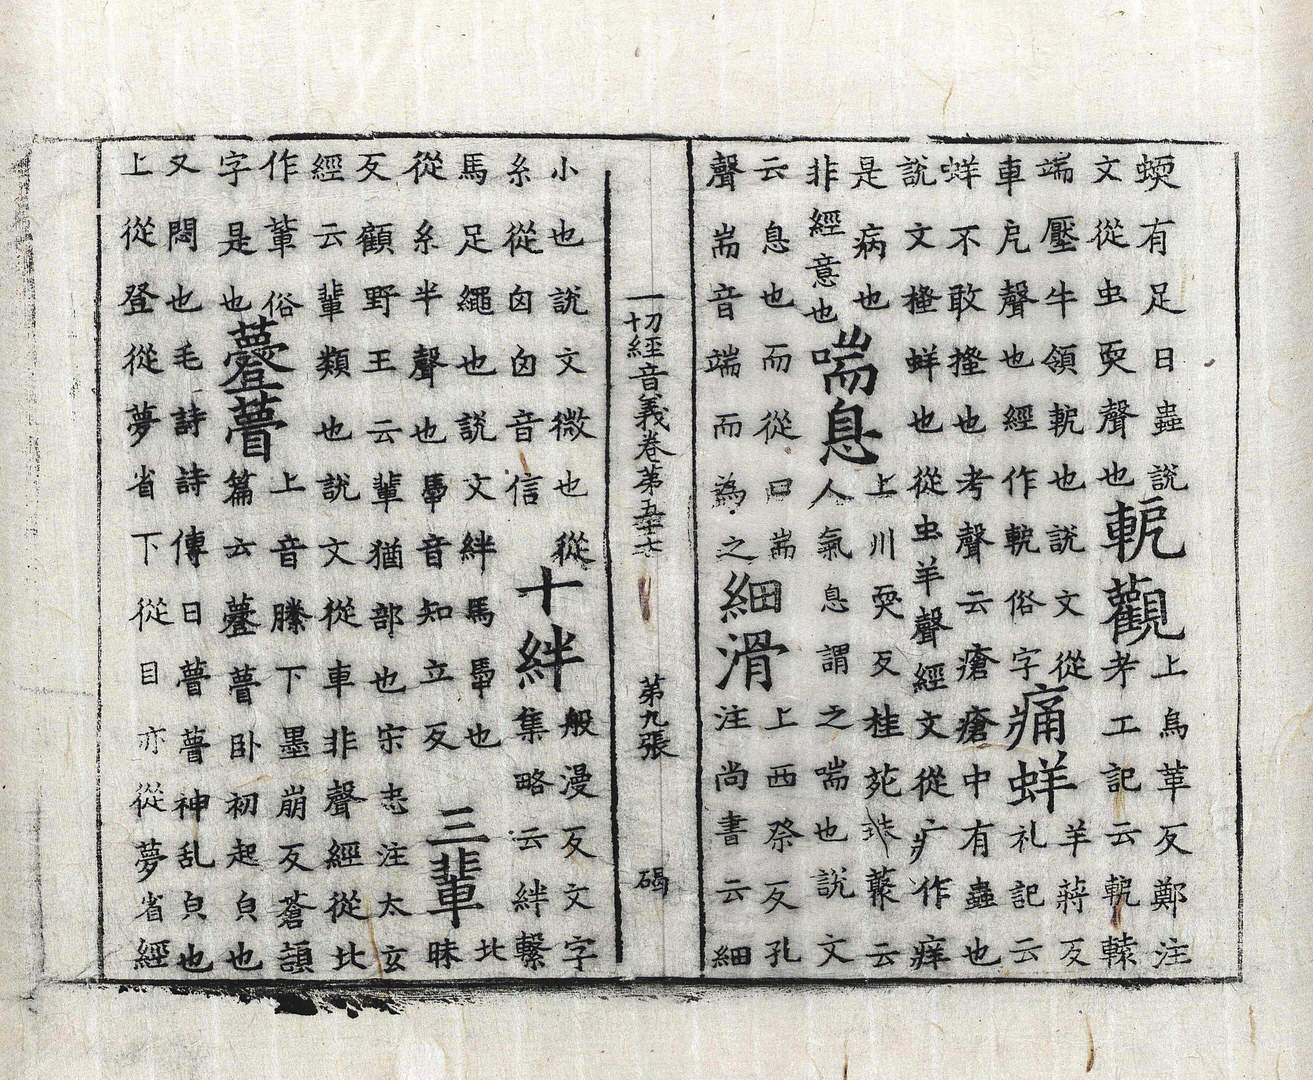 蝡有足曰蟲說
文從虫耎聲也
軛觀
上烏革反鄭注
考工記云軛轅
端壓牛領軛也說文從
車戹聲也經作軛俗字
痛蛘
羊蔣反
礼記云
蛘不敢搔也考聲云瘡瘡中有蟲也
說文搔蛘也從虫羊聲經文從疒作痒
是病也
非經意也
喘息
上川耎反桂苑珠藂云
人氣息謂之喘也說文
云息也而從口耑
聲耑音端而為之
細滑
上西祭反孔
注尚書云細
一切經音義卷第五十六 第九張 碣
小也說文微也從
糸從囟囟音信
十絆
般漫反文字
集略云絆繫
馬足繩也說文絆馬馽也
從糸半聲也馽音知立反
三輩
北
昧
反顧野王云輩猶部也宋忠注太玄
經云輩類也說文從車非聲經從北
作軰俗
字是也
瞢
上音騰下墨崩反蒼頡
篇云瞢卧初起皃也
又悶也毛詩詩傳曰瞢瞢神乱皃也
上從登從夢省下從目亦從夢省經